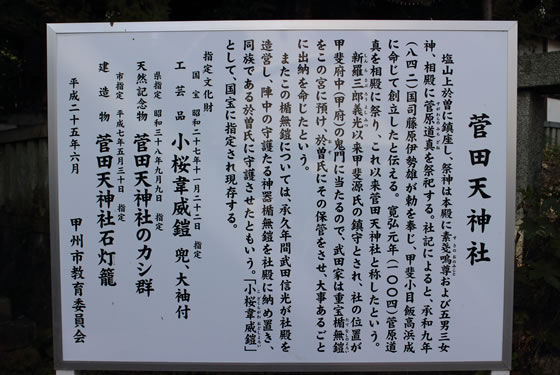 菅田天神社
塩山上於曽に鎮座し、祭神は本殿に素盞嗚尊および五男三女
神、相殿に菅原道真を祭祀する。社記によると、承和九年
（八四二）国司藤原伊勢雄が勅を奉じ、甲斐少目飯高浜成
に命じて創立したと伝える。寛弘元年（一〇〇四）菅原道
真を相殿に祭り、これ以来菅田天神社と称したという。
新羅三郎義光以来甲斐源氏の鎮守とされ、社の位置が
甲斐府中（甲府）の鬼門に当たるので、武田家は重宝楯無鎧
をこの宮に預け、於曽氏にその保管をさせ、大事あるごと
に出納を命じたという。
またこの楯無鎧については、承久年間武田信光が社殿を
造営し、陣中の守護たる神器楯無鎧を社殿に納め置き、
同族である於曽氏に守護させたともいう。「小桜韋威鎧」
として、国宝に指定され現存する。
指定文化財
国宝 昭和二十七年十一月二十二日 指定
工芸品 小桜韋威鎧 兜、大袖付
県指定 昭和三十八年九月九日 指定
天然記念物 菅田天神社のカシ群
市指定 平成七年五月三十日 指定
建造物 菅田天神社石灯籠
平成二十五年六月 甲州市教育委員会